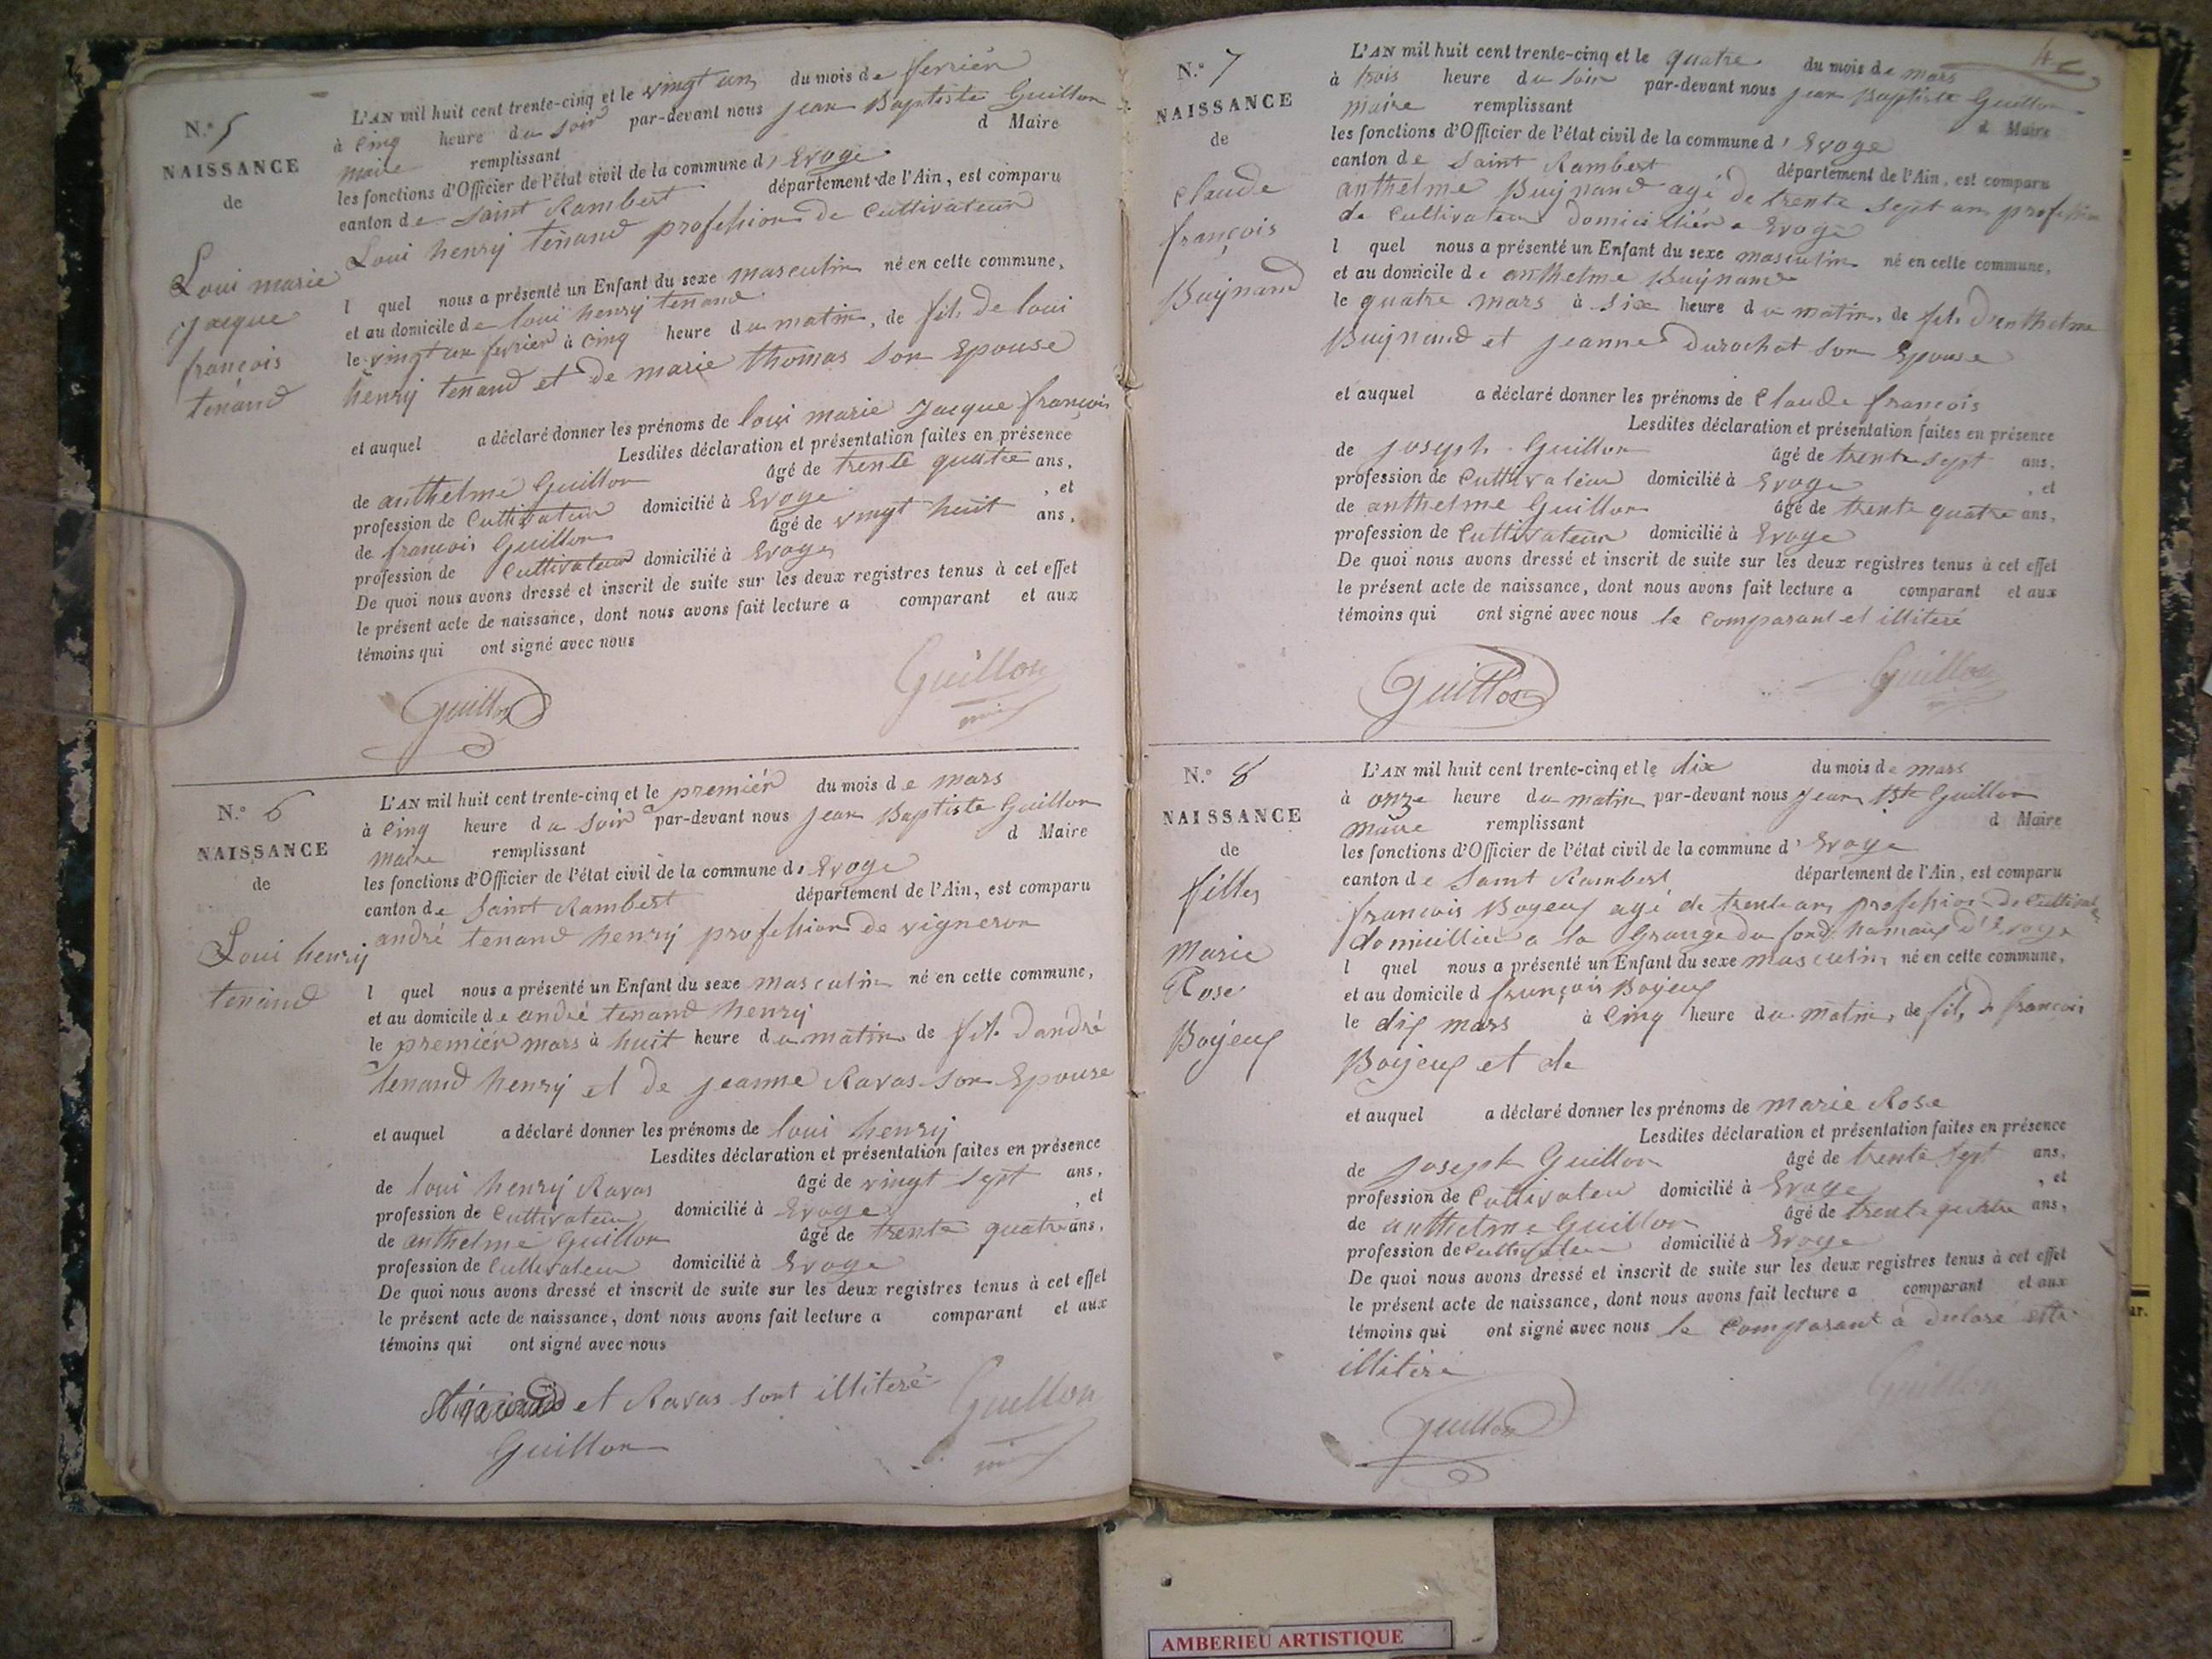 N.° 5
NAISSANCE
de
Loui marie
Jacque
françois
tenand
L'AN mil huit cent trente-cinq et le vingt un du mois de ferrier
à Cinq heure du soir par-devant nous jean Baptiste Guillon
maire remplissant d Maire
les fonctions d'Officier de l'état civil de la commune d' Evoge
canton de saint Rambert département de l'Ain, est comparu
Loui henry tenand profession de Cultivateur
l quel nous a présenté un Enfant du sexe masculin né en cette commune,
et au domicile de loui henry tenand
le vingt un fevrier à cinq heure du matin, de fils de loui
henry tenand et de marie thomas son Epouse
et auquel a déclaré donner les prénoms de loui marie Jacque françois
Lesdites déclaration et présentation faites en présence
de anthelme Guillon âgé de trente quatre ans,
profession de Cultivateur domicilié à Evoge , et
de françois Guillon âgé de vingt huit ans,
profession de Cultivateur domicilié à Evoge
De quoi nous avons dressé et inscrit de suite sur les deux registres tenus à cet effet
le présent acte de naissance, dont nous avons fait lecture a comparant et aux
témoins qui ont signé avec nous
Guillon Guillon
N.° 6
NAISSANCE
de
Loui henry
tenand
L'AN mil huit cent trente-cinq et le premiér du mois de mars
à Cinq heure du soir par-devant nous jean Baptiste Guillon
maire remplissant d Maire
les fonctions d'Officier de l'état civil de la commune d' Evoge
canton de saint Rambert département de l'Ain, est comparu
andré tenand henry profession de vigneron
l quel nous a présenté un Enfant du sexe masculin né en cette commune,
et au domicile de andré tenand henry
le premiér mars à huit heure du matin de fils d'andré
tenand henry et de jeanne Ravas son Epouse
et auquel a déclaré donner les prénoms de loui henry
Lesdites déclaration et présentation faites en présence
de loui henry Ravas âgé de vingt sept ans,
profession de Cultivateur domicilié à Evoge , et
de anthelme Guillon âgé de trente quatre ans,
profession de Cultivateur domicilié à Evoge
De quoi nous avons dressé et inscrit de suite sur les deux registres tenus à cet effet
le présent acte de naissance, dont nous avons fait lecture a comparant et aux
témoins qui ont signé avec nous
et Ravas sont illiteré Guillon
Guillon
N.° 7
NAISSANCE
de
Claude
françois
Buynand
L'AN mil huit cent trente-cinq et le quatre du mois de mars
à trois heure du soir par-devant nous jean Baptiste Guillon
maire remplissant d Maire
les fonctions d'Officier de l'état civil de la commune d' Evoge
canton de saint Rambert département de l'Ain, est comparu
anthelme Buynand agé de trente sept an profession
de Cultivateur domicillier a Evoge
l quel nous a présenté un Enfant du sexe masculin né en cette commune,
et au domicile de anthelme Buynand
le quatre mars à six heure du matin, de fils d'anthelme
Buynand et jeanne Durochat son Epouse
et auquel a déclaré donner les prénoms de Claude françois
Lesdites déclaration et présentation faites en présence
de joseph Guillon âgé de trente sept ans,
profession de Cultivateur domicilié à Evoge , et
de anthelme Guillon âgé de trente quatre ans,
profession de Cultivateur domicilié à Evoge
De quoi nous avons dressé et inscrit de suite sur les deux registres tenus à cet effet
le présent acte de naissance, dont nous avons fait lecture a comparant et aux
témoins qui ont signé avec nous le Comparant et illiteré
Guillon Guillon
N.° 8
NAISSANCE
de
filles
Marie
Rose
Boyeux
L'AN mil huit cent trente-cinq et le dix du mois de mars
à onze heure du matin par-devant nous jean Bste Guillon
maire remplissant d Maire
les fonctions d'Officier de l'état civil de la commune d' Evoge
canton de saint Rambert département de l'Ain, est comparu
françois Boyeux agé de trente an profession de Cultivat
domicillier a la Grange du fond hamaux d'Evoge
l quel nous a présenté un Enfant du sexe masculin né en cette commune,
et au domicile d françois Boyeux
le dix mars à cinq heure du matin, de fils de françois
Boyeux et de
et auquel a déclaré donner les prénoms de marie Rose
Lesdites déclaration et présentation faites en présence
de joseph Guillon âgé de trente sept ans,
profession de Cultivateur domicilié à Evoge , et
de anthelme Guillon âgé de trente quatre ans,
profession de Cultivateur domicilié à Evoge
De quoi nous avons dressé et inscrit de suite sur les deux registres tenus à cet effet
le présent acte de naissance, dont nous avons fait lecture a comparant et aux
témoins qui ont signé avec nous le Comparant a declaré etre
illiteré
Guillon Guillon
AMBERIEU ARTISTIQUE